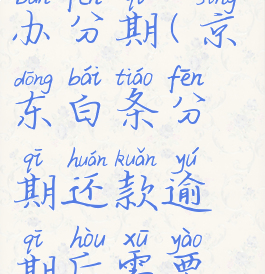 bàn fēn qī jīng
办分期(京
dōng bái tiáo fēn
东白条分
qī huán kuǎn yú
期还款逾
qī hòu xū yào
期后需要